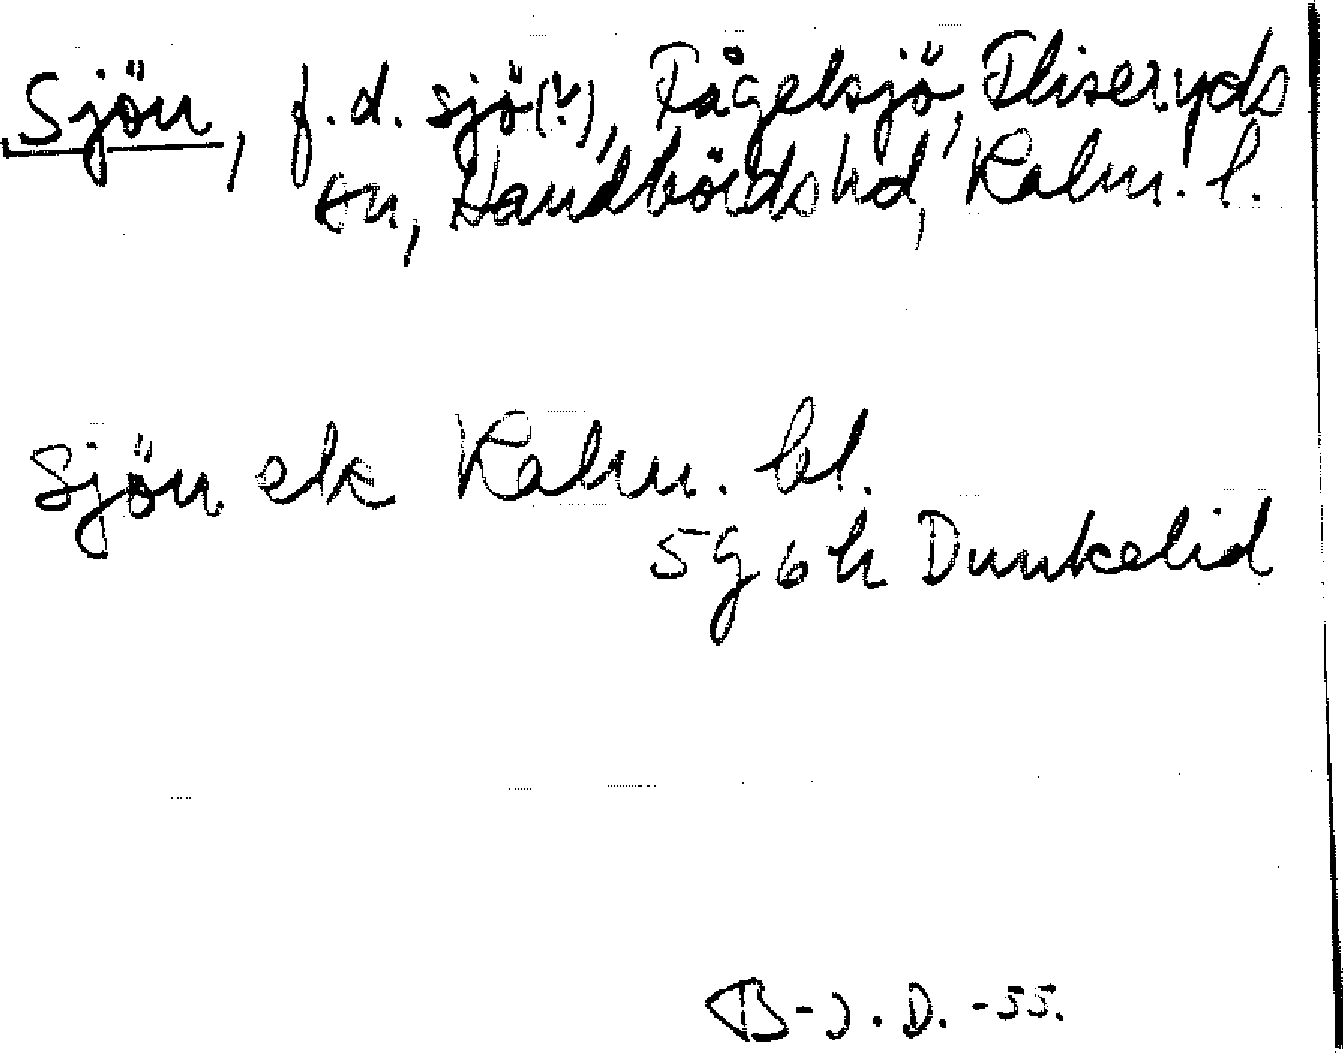 Sjön, f.d. sjö(?), Fågelsjö, Fliseryds
sn, Handbörds hd, Kalm. l.
Sjön ek Kalm. bl.
5g6h Dunkelid
B-J.D. -55.